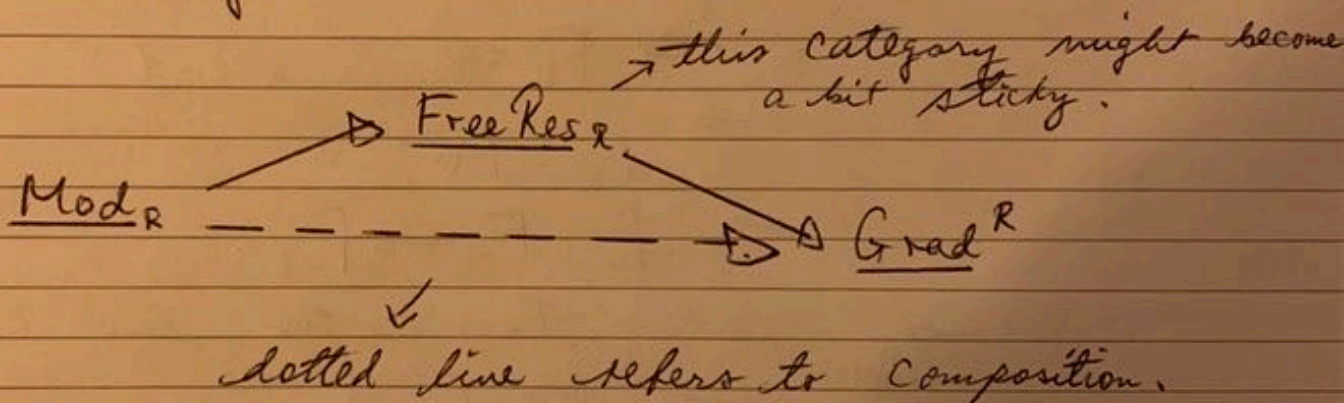 this category might become
a bit sticky.
FreeRes R
Mod R
Grad R
dotted line refers to composition.